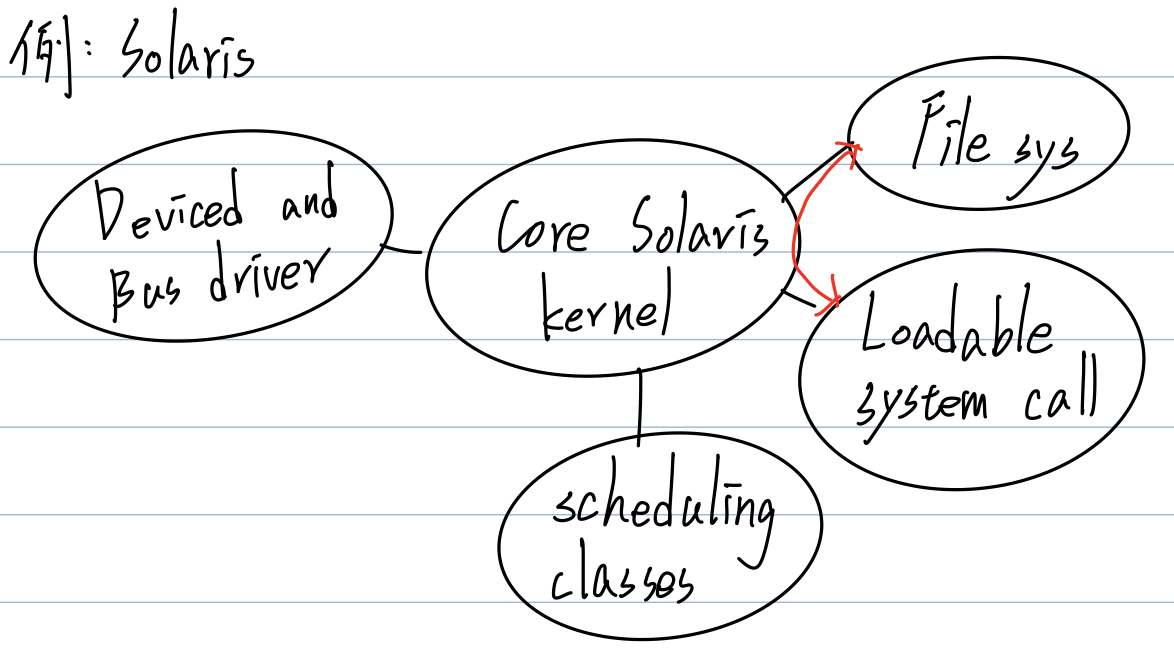 例: Solaris
Deviced and
Bus driver
Core Solaris
kernel
File sys
Loadable
system call
scheduling
classes